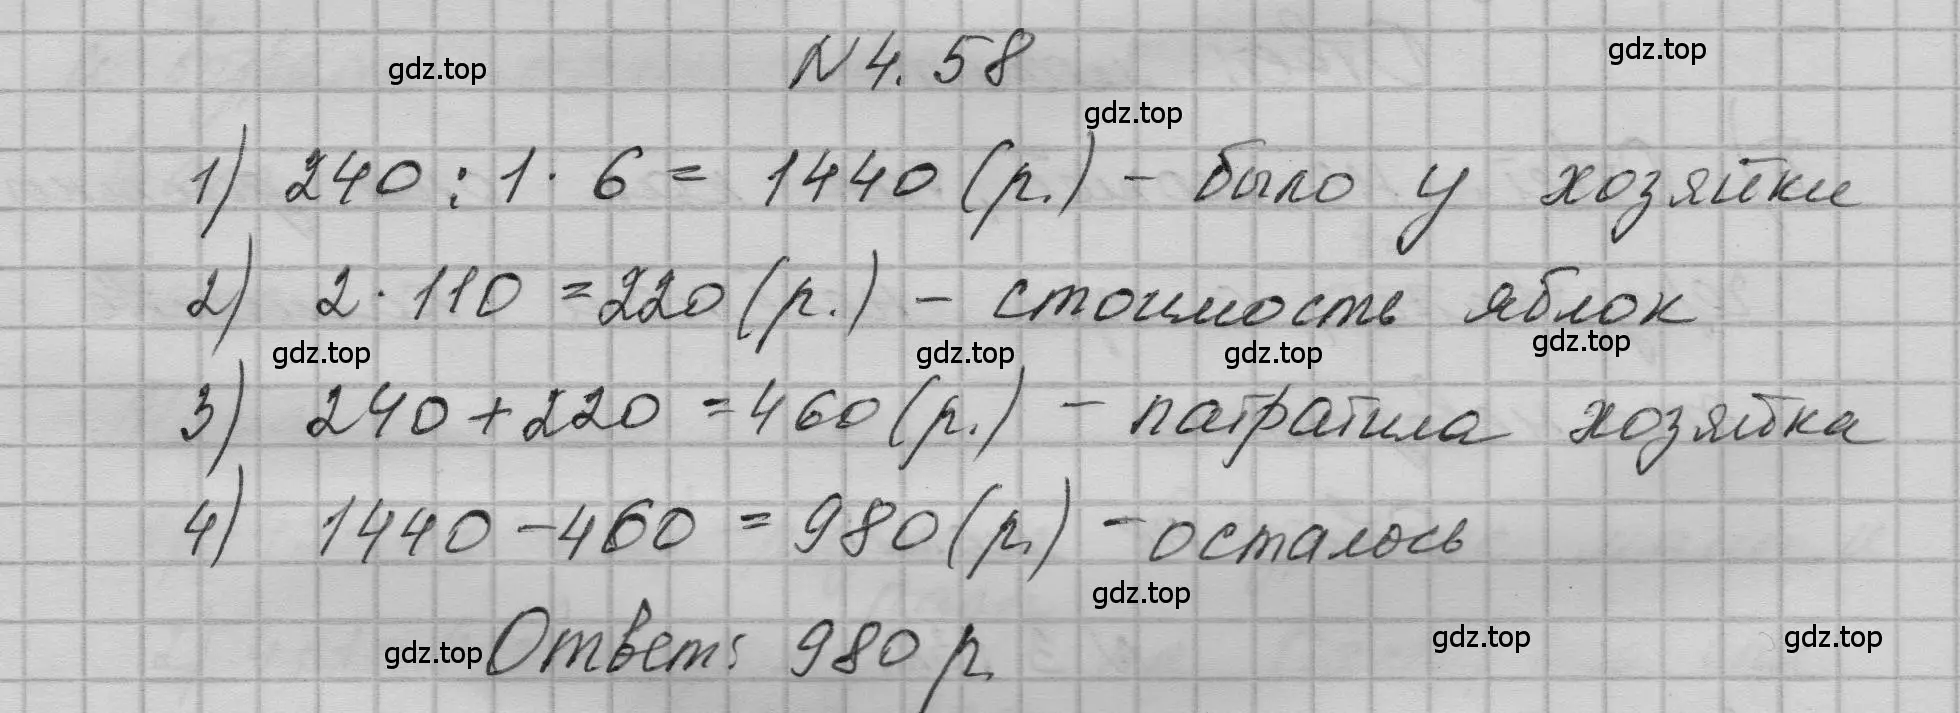 gdz.top
N 4. 58
gdz.top
gdz.top
1) 240 : 1 · 6 = 1440 (р.) - было у хозяйки
2) 2 · 110 = 220 (р.) - стоимость яблок
gdz.top gdz.top gdz.top gdz.top
3) 240 + 220 = 460 (р.) - патратила хозяйка
4) 1440 - 460 = 980 (р.) - осталось
gdz.top
gdz.top Ответ: 980 р.
gdz.top gdz.top